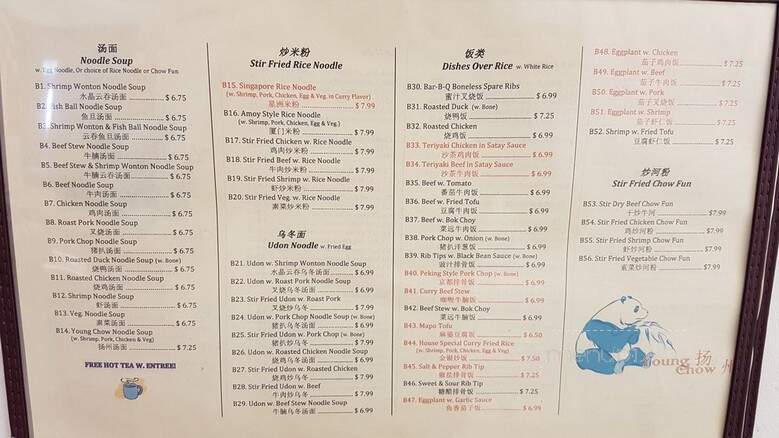 汤面
Noodle Soup
w. Egg Noodle, Or choice of Rice Noodle or Chow Fun
B1. Shrimp Wonton Noodle Soup
水晶云吞汤面 $ 6.75
B2. Fish Ball Noodle Soup
鱼旦汤面 $ 6.75
B3. Shrimp Wonton & Fish Ball Noodle Soup
云吞鱼旦汤面 $ 6.75
B4. Beef Stew Noodle Soup
牛腩汤面 $ 6.75
B5. Beef Stew & Shrimp Wonton Noodle Soup
牛腩云吞汤面 $ 6.75
B6. Beef Noodle Soup
牛肉汤面 $ 6.75
B7. Chicken Noodle Soup
鸡肉汤面 $ 6.75
B8. Roast Pork Noodle Soup
叉烧汤面 $ 6.75
B9. Pork Chop Noodle Soup
猪扒汤面 $ 6.75
B10. Roasted Duck Noodle Soup (w. Bone)
烧鸭汤面 $ 6.75
B11. Roasted Chicken Noodle Soup
烧鸡汤面 $ 6.75
B12. Shrimp Noodle Soup
虾汤面 $ 6.75
B13. Veg. Noodle Soup
素菜汤面 $ 6.75
B14. Young Chow Noodle Soup
(w. Shrimp, Pork, Chicken & Veg)
扬州汤面 $ 7.25
FREE HOT TEA W. ENTREE!
炒米粉
Stir Fried Rice Noodle
B15. Singapore Rice Noodle
(w. Shrimp, Pork, Chicken, Egg & Veg. in Curry Flavor)
星洲米粉 $ 7.99
B16. Amoy Style Rice Noodle
(w. Shrimp, Pork, Chicken, Egg & Veg.)
厦门米粉 $ 7.99
B17. Stir Fried Chicken w. Rice Noodle
鸡肉炒米粉 $ 7.99
B18. Stir Fried Beef w. Rice Noodle
牛肉炒米粉 $ 7.99
B19. Stir Fried Shrimp w. Rice Noodle
虾炒米粉 $ 7.99
B20. Stir Fried Veg. w. Rice Noodle
素菜炒米粉 $ 7.99
乌冬面
Udon Noodle w. Fried Egg
B21. Udon w. Shrimp Wonton Noodle Soup
水晶云吞乌冬汤面 $ 6.99
B22. Udon w. Roast Pork Noodle Soup
叉烧乌冬汤面 $ 6.99
B23. Stir Fried Udon w. Roast Pork
叉烧炒乌冬 $ 7.99
B24. Udon w. Pork Chop Noodle Soup (w. Bone)
猪扒乌冬汤面 $ 6.99
B25. Stir Fried Udon w. Pork Chop (w. Bone)
猪扒炒乌冬 $ 7.99
B26. Udon w. Roasted Chicken Noodle Soup
烧鸡乌冬汤面 $ 6.99
B27. Stir Fried Udon w. Roasted Chicken
烧鸡炒乌冬 $ 7.99
B28. Stir Fried Udon w. Beef
牛肉炒乌冬 $ 7.99
B29. Udon w. Beef Stew Noodle Soup
牛腩乌冬汤面 $ 6.99
饭类
Dishes Over Rice w. White Rice
B30. Bar-B-Q Boneless Spare Ribs
蜜汁叉烧饭 $ 6.99
B31. Roasted Duck (w. Bone)
烧鸭饭 $ 7.25
B32. Roasted Chicken
烧鸡饭 $ 6.99
B33. Teriyaki Chicken in Satay Sauce
沙茶鸡肉饭 $ 6.99
B34. Teriyaki Beef in Satay Sauce
沙茶牛肉饭 $ 6.99
B35. Beef w. Tomato
番茄牛肉饭 $ 6.99
B36. Beef w. Fried Tofu
豆腐牛肉饭 $ 6.99
B37. Beef w. Bok Choy
菜远牛肉饭 $ 6.99
B38. Pork Chop w. Onion (w. Bone)
猪扒洋葱饭 $ 6.99
B39. Rib Tips w. Black Bean Sauce (w. Bone)
豉汁排骨饭 $ 6.99
B40. Peking Style Pork Chop (w. Bone)
京都排骨饭 $ 6.99
B41. Curry Beef Stew
咖喱牛腩饭 $ 6.99
B42. Beef Stew w. Bok Choy
菜远牛腩饭 $ 6.99
B43. Mapo Tofu
麻婆豆腐饭 $ 6.50
B44. House Special Curry Fried Rice
(w. Shrimp, Pork, Chicken, Egg & Veg)
金银炒饭 $ 7.50
B45. Salt & Pepper Rib Tip
椒盐排骨饭 $ 7.25
B46. Sweet & Sour Rib Tip
糖醋排骨饭 $ 7.25
B47. Eggplant w. Garlic Sauce
鱼香茄子饭 $ 6.99
B48. Eggplant w. Chicken
茄子鸡肉饭 $ 7.25
B49. Eggplant w. Beef
茄子牛肉饭 $ 7.25
B50. Eggplant w. Pork
茄子叉烧饭 $ 7.25
B51. Eggplant w. Shrimp
茄子虾仁饭 $ 7.25
B52. Shrimp w. Fried Tofu
豆腐虾仁饭 $ 7.25
炒河粉
Stir Fried Chow Fun
B53. Stir Dry Beef Chow Fun
干炒牛河 $7.99
B54. Stir Fried Chicken Chow Fun
鸡炒河粉 $7.99
B55. Stir Fried Shrimp Chow Fun
虾炒河粉 $7.99
B56. Stir Fried Vegetable Chow Fun
素菜炒河粉 $7.99
Young 扬
Chow 州